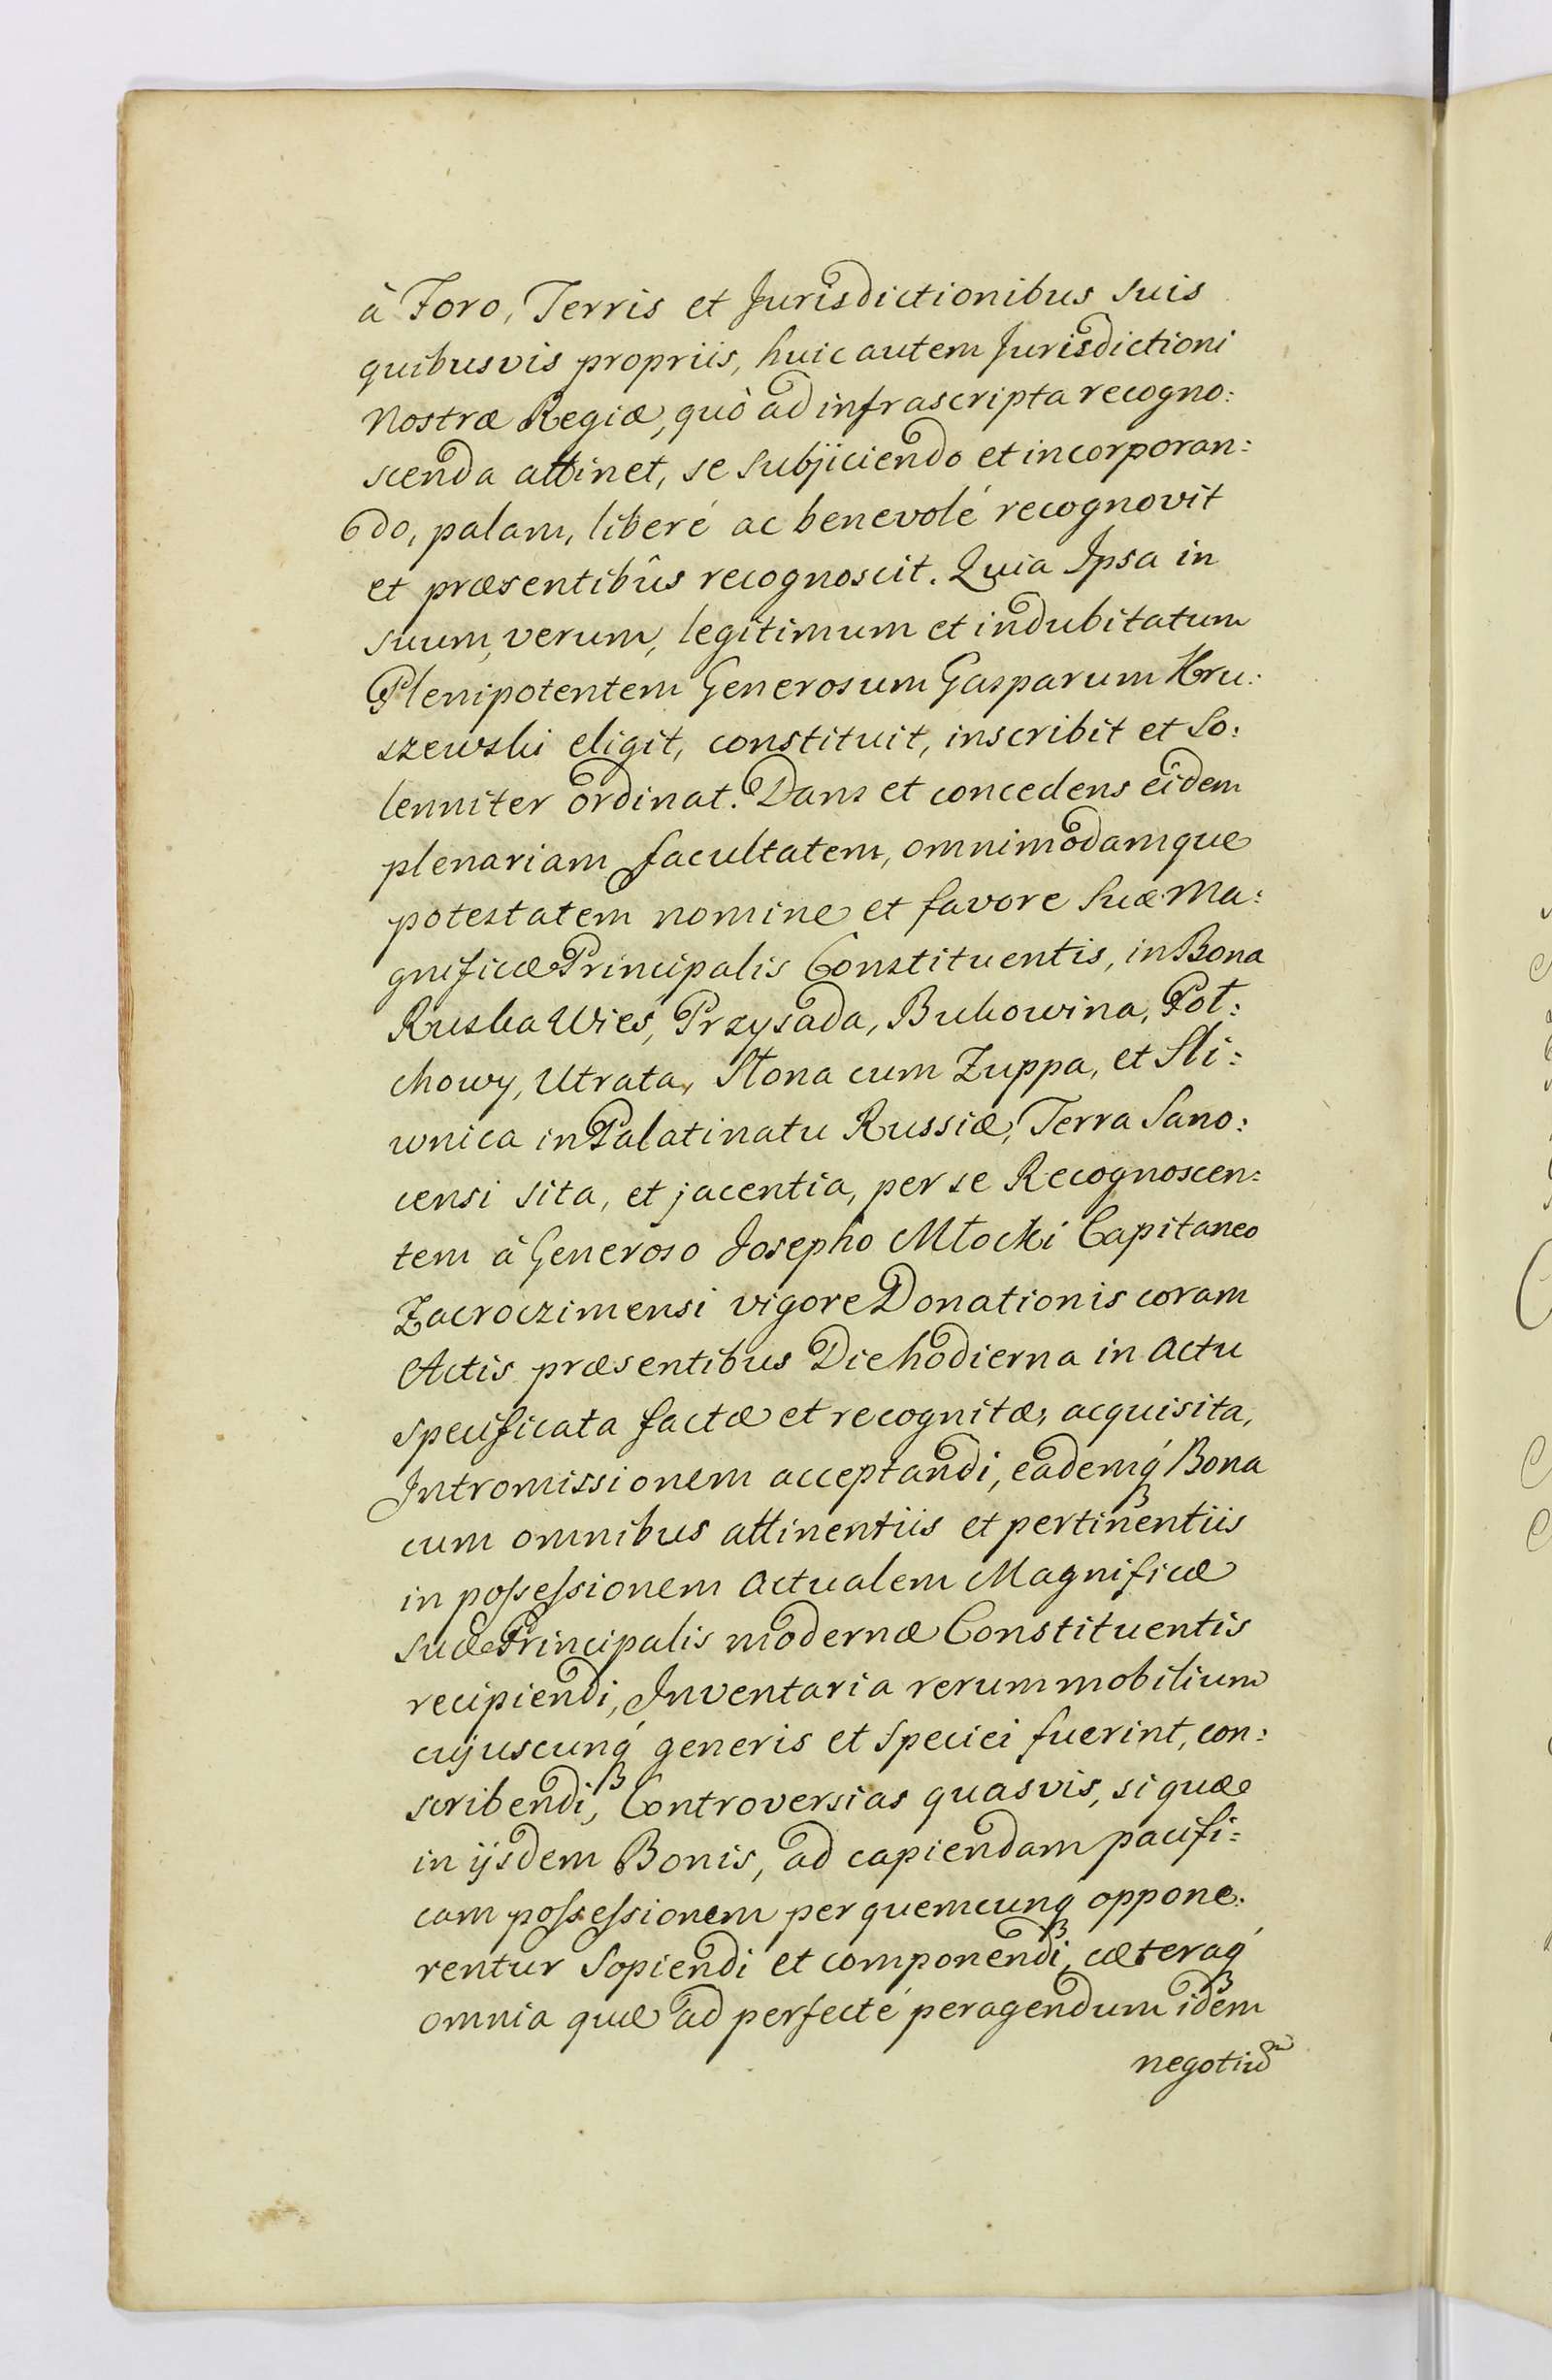 à Foro, Terris et Jurisdictionibus suis
quibusvis propriis, huic autem Jurisdictioni
Nostræ Regiæ, quò ad infrascripta recogno:
scenda attinet, se subjiciendo et incorporan:
do, palam, liberé ac benevolé recognovit
et præsentibûs recognoscit. Quia Ipsa in
suum, verum, legitimum et indubitatum
Plenipotentem Generosum Gasparum Kru:
szewski eligit, constituit, inscribit et So:
lenniter ordinat. Dans et concedens eidem
plenariam facultatem, omnimodamque
potestatem nomine et favore Suæ Ma:
gnificæ Principalis Constituentis, in Bona
Ruska Wieś, Przysada, Bukowina, Poł:
chowy, Utrata, Słona cum Zuppa, et Sli:
wnica in Palatinatu Russiæ, Terra Sano:
censi sita, et jacentia, per se Recognoscen:
tem à Generoso Josepho Młocki Capitaneo
Zacroczimensi vigore Donationis coram
Actis præsentibus Die hodierna in Actu
specificata factæ et recognitæ, acquisita,
Intromissionem acceptandi, eademq́ꝫ Bona
cum omnibus attinentiis et pertinentiis
in possessionem actualem Magnificæ
suæ Principalis modernæ Constituentis
recipiendi, Inventaria rerum mobilium
cujuscunq́ꝫ generis et speciei fuerint, con:
scribendi, Controversias quasvis, si quæ
in ijsdem Bonis, ad capiendam pacifi:
cam possessionem per quemcunq́ꝫ oppone:
rentur Sopiendi et componendi, cæteraq́ꝫ
omnia quæ ad perfecté peragendum idem
negotiũ